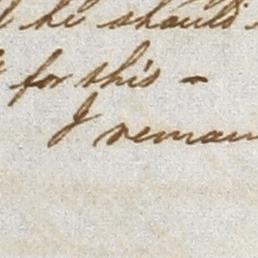 he should
for this -
I remain